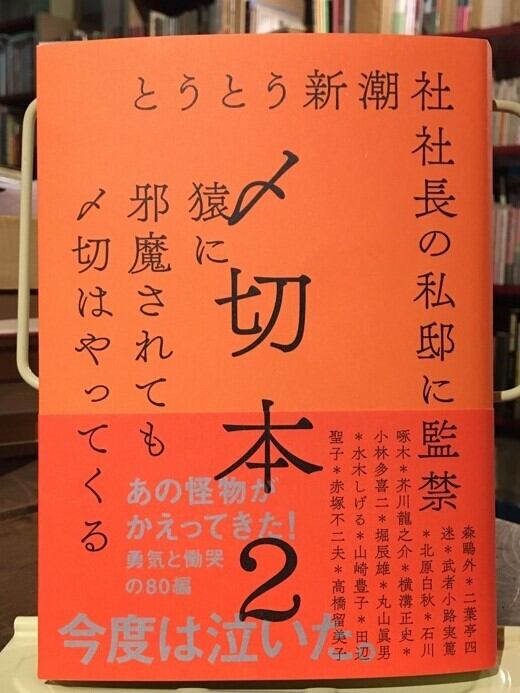 とうとう新潮
社社長の私邸に監禁
〆切本2
猿に
邪魔されても
〆切はやってくる
あの怪物が
かえってきた!
勇気と慟哭
の80編
今度は泣いた。
森鷗外*二葉亭四
迷*武者小路実篤
*北原白秋*石川
啄木*芥川龍之介*横溝正史*
小林多喜二*堀辰雄*丸山眞男
*水木しげる*山崎豊子*田辺
聖子*赤塚不二夫*高橋留美子